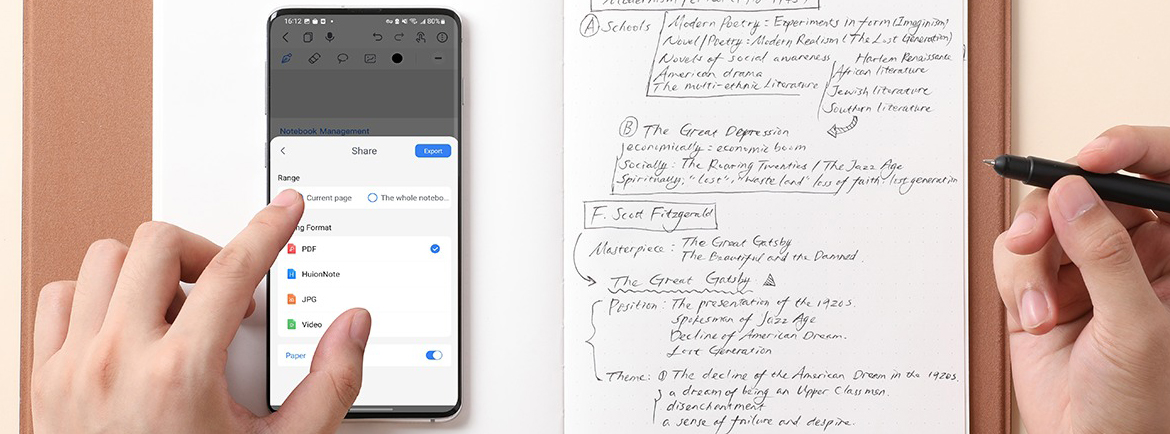 16:12 80%
Notebook Management
Share
Export
Range
Current page
The whole notebo...
ng Format
PDF
HuionNote
JPG
Video
Paper
A Schools
Modern Poetry: Experiments in form (Imaginism)
Novel/Poetry: Modern Realism (The Lost Generation)
Novels of social awareness
Harlem Renaissance
American drama
African literature
The multi-ethnic Literature
Jewish literature
Southern literature
B The Great Depression
economically: economic boom
Socially: The Roaring Twenties / The Jazz Age
Spiritually: "lost", "waste land" loss of faith. lost generation
F. Scott Fitzgerald
Masterpiece: The Great Gatsby
The Beautiful and the Damned.
The Great Gatsby
Position: The presentation of the 1920s.
spokesman of Jazz Age
Decline of American Dream.
Lost Generation
Theme: ① The decline of the American Dream in the 1920s.
a dream of being an Upper Classman.
disenchantment
a sense of failure and despire.